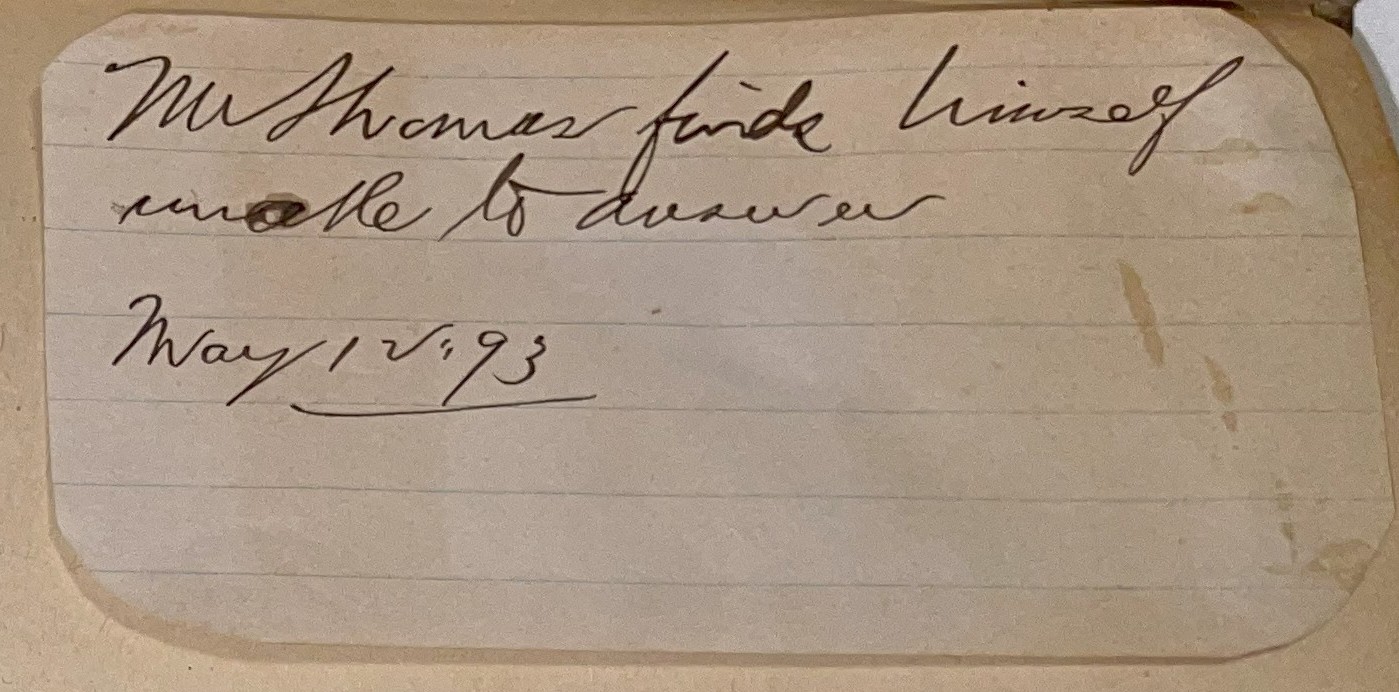 Mr Thomas finds himself
unable to answer
May 12: 93